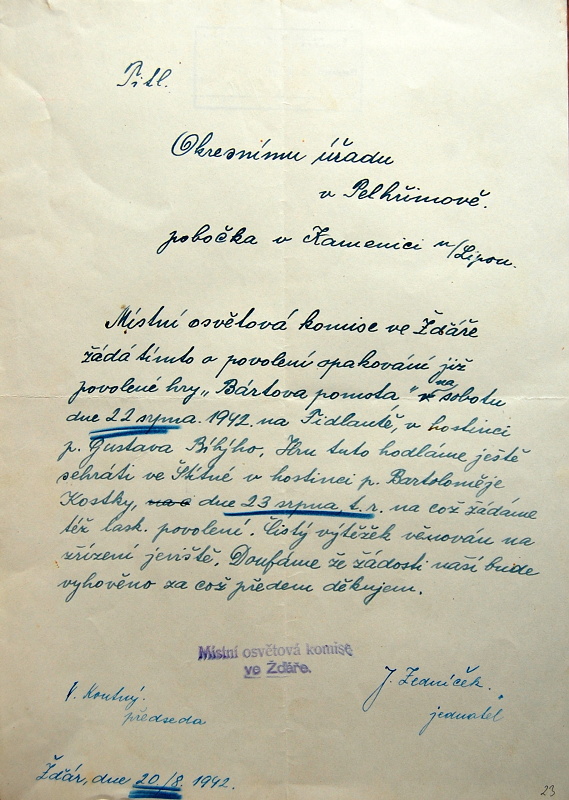 Titl.
Okresnímu úřadu
v Pelhřimově.
pobočka v Kamenici n/Lipou.
Místní osvětová komise ve Žďáře
žádá tímto o povolení opakování již
povolené hry „Bártova pomsta" na sobotu
dne 22 srpna 1942 na Fidlantě, v hostinci
p. Gustava Bihýho. Hru tuto hodláme ještě
sehráti ve Štítné v hostinci p. Bartoloměje
Kostky, dne 23 srpna t.r. na což žádáme
též lask. povolení. Čistý výtěžek věnován na
zřízení jeviště. Doufáme že žádosti naší bude
vyhověno za což předem děkujem.
Místní osvětová komise
ve Žďáře.
V. Koutný. J. Zedníček.
předseda jednatel
Žďár, dne 20./8. 1942.
23